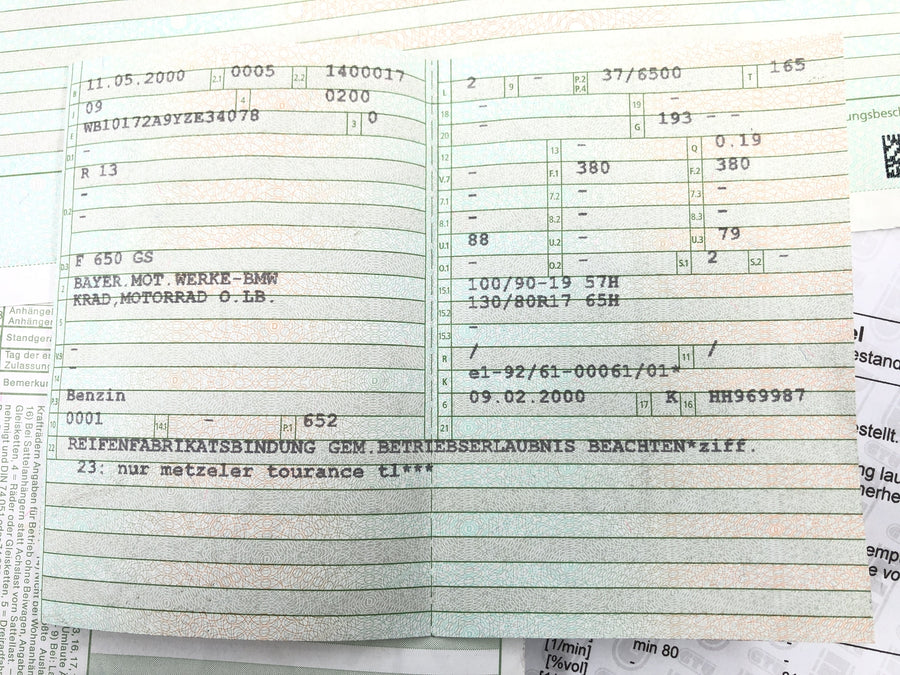 B 11.05.2000 2.1 0005 2.2 1400017
J 09 4 0200
E WB10172A9YZE34078 3 0
D.1 -
R 13
D.2 -
-
D.3 F 650 GS
2 BAYER.MOT.WERKE-BMW
KRAD,MOTORRAD O.LB.
5
V.9 -
14 -
P.3 Benzin
10 0001 14.1 - P.1 652
22 REIFENFABRIKATSBINDUNG GEM.BETRIEBSERLAUBNIS BEACHTEN*ziff.
23: nur metzeler tourance tl***
L 2 9 - P.2 P.4 37/6500 T 165
18 - 19 -
20 - G 193 - -
12 - 13 - Q 0.19
V.7 - F.1 380 F.2 380
7.1 - 7.2 - 7.3 -
8.1 - 8.2 - 8.3 -
U.1 88 U.2 - U.3 79
O.1 - O.2 - S.1 2 S.2 -
15.1 100/90-19 57H
15.2 130/80R17 65H
15.3 -
R / 11 /
K e1-92/61-00061/01*
6 09.02.2000 17 K 16 HH969987
21
Anhängel
Anhänger
Standgerä
Tag der er
Zulassung
Bemerkur
ungsbesch
el
estand
stellt.
ng lau
nerhe
emp
e vo
[1/min] min 80
[%vol] -